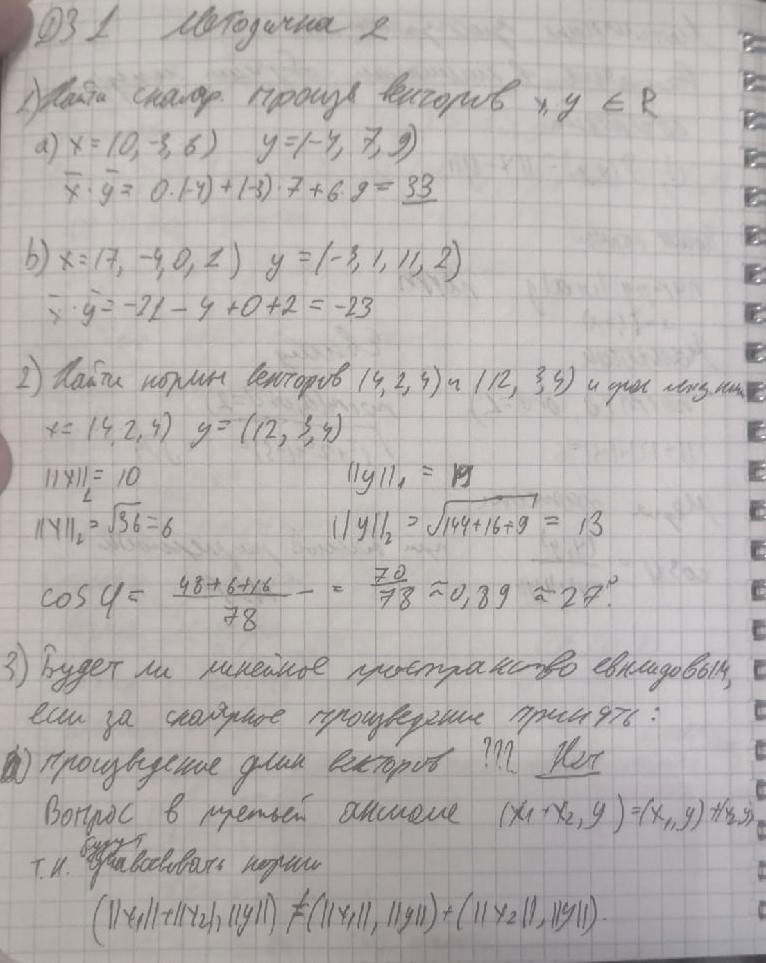 ДЗ 1 Методичка 2
1) Найти скаляр. произв векторов x, y ∈ R
a) x=(0, -3, 6) y=(-4, 7, 9)
x̄ · ȳ = 0·(-4)+(-3)·7+6·9=33
b) x=(7, -4, 0, 1) y=(-3, 1, 11, 2)
x̄ · ȳ = -21 - 4 + 0 + 2 = -23
2) Найти нормы векторов (4, 2, 4) и (12, 3, 4) и угол между ними
x=(4, 2, 4) y=(12, 3, 4)
||x||₁ = 10 ||y||₁ = 19
||x||₂ = √36 = 6 ||y||₂ = √144+16+9 = 13
cos φ = 48+6+16/78 = 70/78 ≈ 0,89 ≈ 27°.
3) Будет ли линейное пространство евклидовым,
если за скалярное произведение принять:
a) произведение длин векторов ??? Нет
Вопрос в третьей аксиоме (x₁+x₂, y)=(x₁, y)+(x₂, y)
т.к. будут нормы
(||x₁||+||x₂||, ||y||) ≠ (||x₁||, ||y||) + (||x₂||, ||y||).